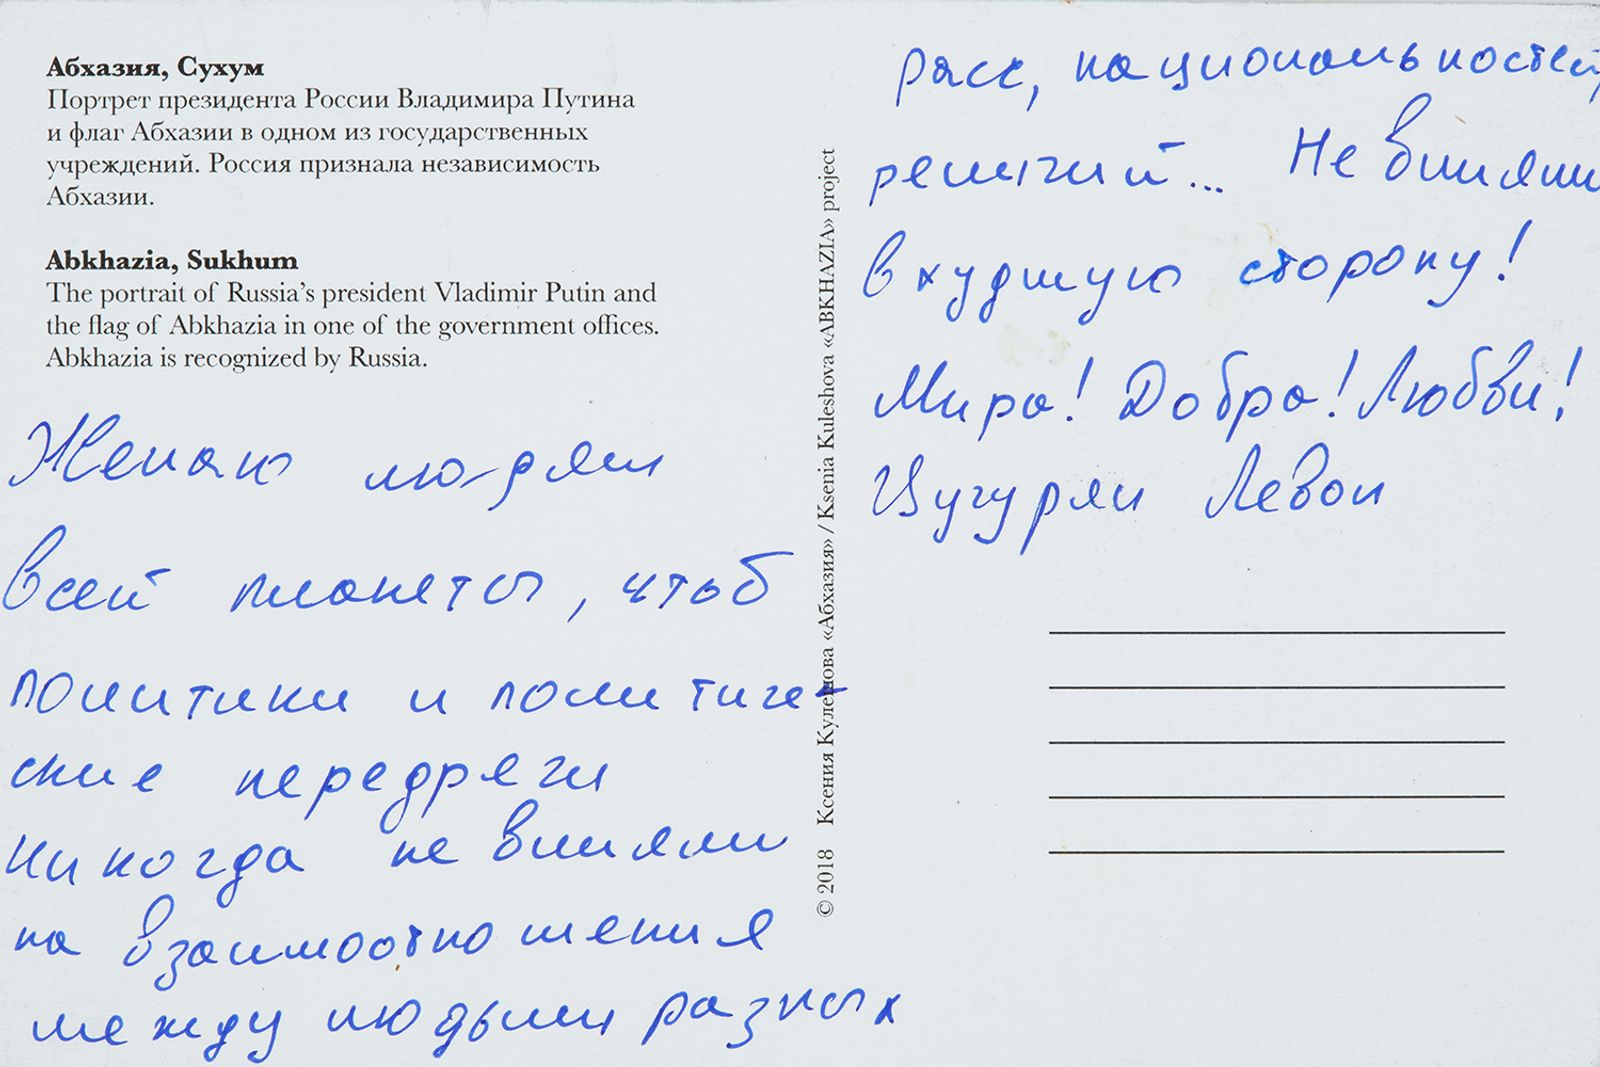 Абхазия, Сухум
Портрет президента России Владимира Путина
и флаг Абхазии в одном из государственных
учреждений. Россия признала независимость
Абхазии.
Abkhazia, Sukhum
The portrait of Russia's president Vladimir Putin and
the flag of Abkhazia in one of the government offices.
Abkhazia is recognized by Russia.
Желаю людям
всей планеты, чтоб
политики и политиче-
ские передряги
никогда не влияли
на взаимоотношения
между людьми разных
© 2018 Ксения Кулешова «Абхазия» / Ksenia Kuleshova «ABKHAZIA» project
расс, национальностей,
религий... Не влияли
в худшую сторону!
Мира! Добра! Любви!
Цугурян Левон